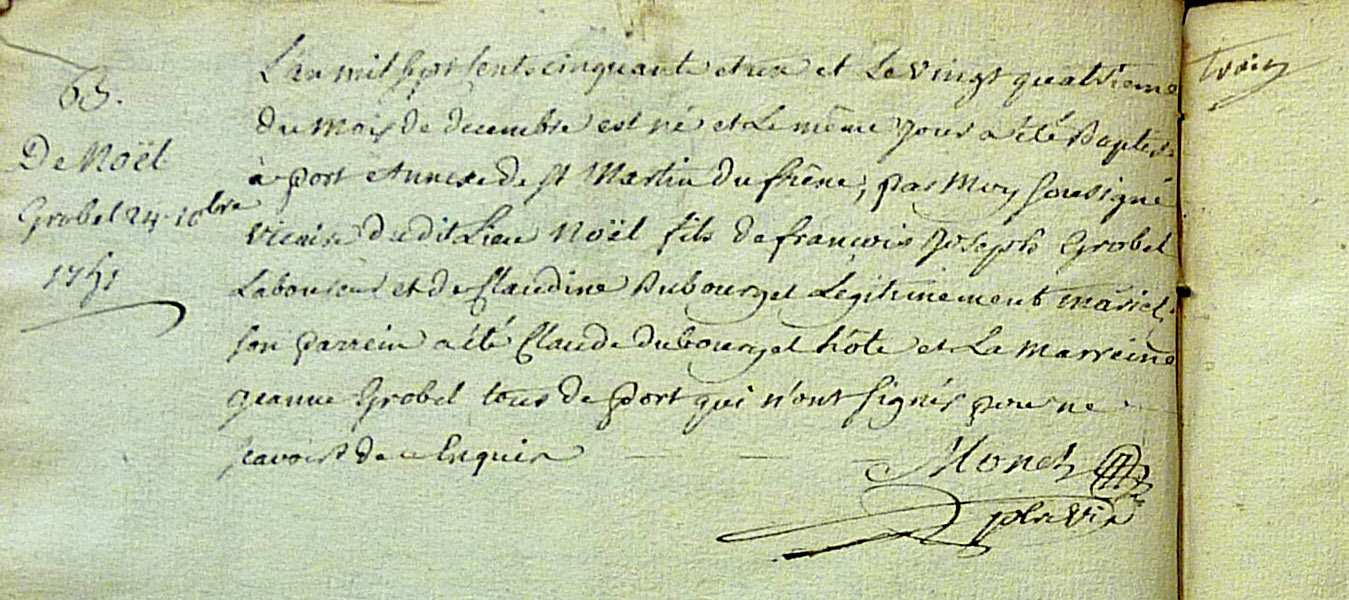 63.
De Noël
Grobel 24. 10bre
1751
L'an mil sept cents cinquante et un et Le vingt quatrieme
du mois de decembre est né et Le même jour a été Baptisé
à port Annexe de st Martin du frêne, par Moy soussigné
vicaire dudit Lieu Noël fils de françois joseph Grobel
Laboureur et de Claudine Dubourget Legitimement mariés,
son parrein a été Claude dubourget hôte et La Marreine
jeanne Grobel tous de port qui n'ont signés pour ne
scavoir de ce Enquis
Monet
ptre vire